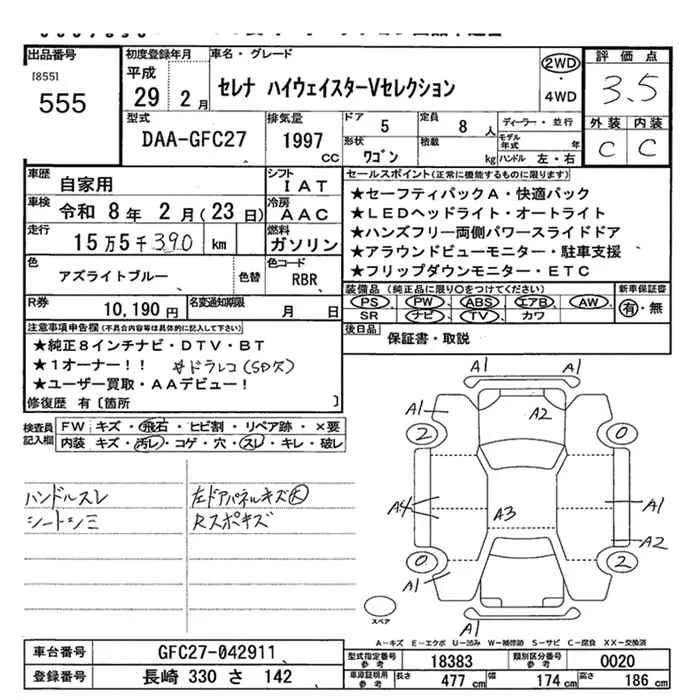 出品番号 初度登録年月 車名・グレード 評価点
[855] 平成 セレナ ハイウェイスターVセレクション 2WD 3.5
555 29 2月 ・4WD
型式 排気量 ドア 5 定員 8 人 ディーラー・並行 外装 内装
DAA-GFC27 1997 cc 形状 ワゴン 積載 kg モデル年式 年 C C
ハンドル 左・右
車歴 自家用 シフト IAT セールスポイント(正常に機能するものに限ります)
車検 令和 8年 2月(23日) 冷房 AAC ★セーフティパックA・快適パック
★LEDヘッドライト・オートライト
走行 15万5千390 km 燃料 ガソリン ★ハンズフリー両側パワースライドドア
★アラウンドビューモニター・駐車支援
色 アズライトブルー 色替 色コード RBR ★フリップダウンモニター・ETC
装備品(純正品に限り○をつけてください) 新車保証書
R券 10,190円 名変通知期限 月 日 PS PW ABS エアB AW 有・無
SR ナビ TV カワ
注意事項申告欄(不具合内容等は具体的に記入して下さい) 後日品 保証書・取説
★純正8インチナビ・DTV・BT
★1オーナー!! #ドラレコ(SD欠)
★ユーザー買取・AAデビュー!
修復歴 有〔箇所 〕
検査員記入欄 FW キズ・飛石・ヒビ割・リペア跡・×要
内装 キズ・汚レ・コゲ・穴・スレ・キレ・破レ
ハンドルスレ 左ドアパネルキズ大
シートシミ Rスポキズ
A1
A1 A2 A1
2 0
A4 A3 A1
A2
0 2
A1 A1
スペア
A-キズ E-エクボ U-凹み W-補修跡 S-サビ C-腐食 XX-交換済
車台番号 GFC27-042911 型式指定番号 参考 18383 類別区分番号 参考 0020
登録番号 長崎 330 さ 142 車庫証明用 参考 長さ 477 cm 幅 174 cm 高さ 186 cm